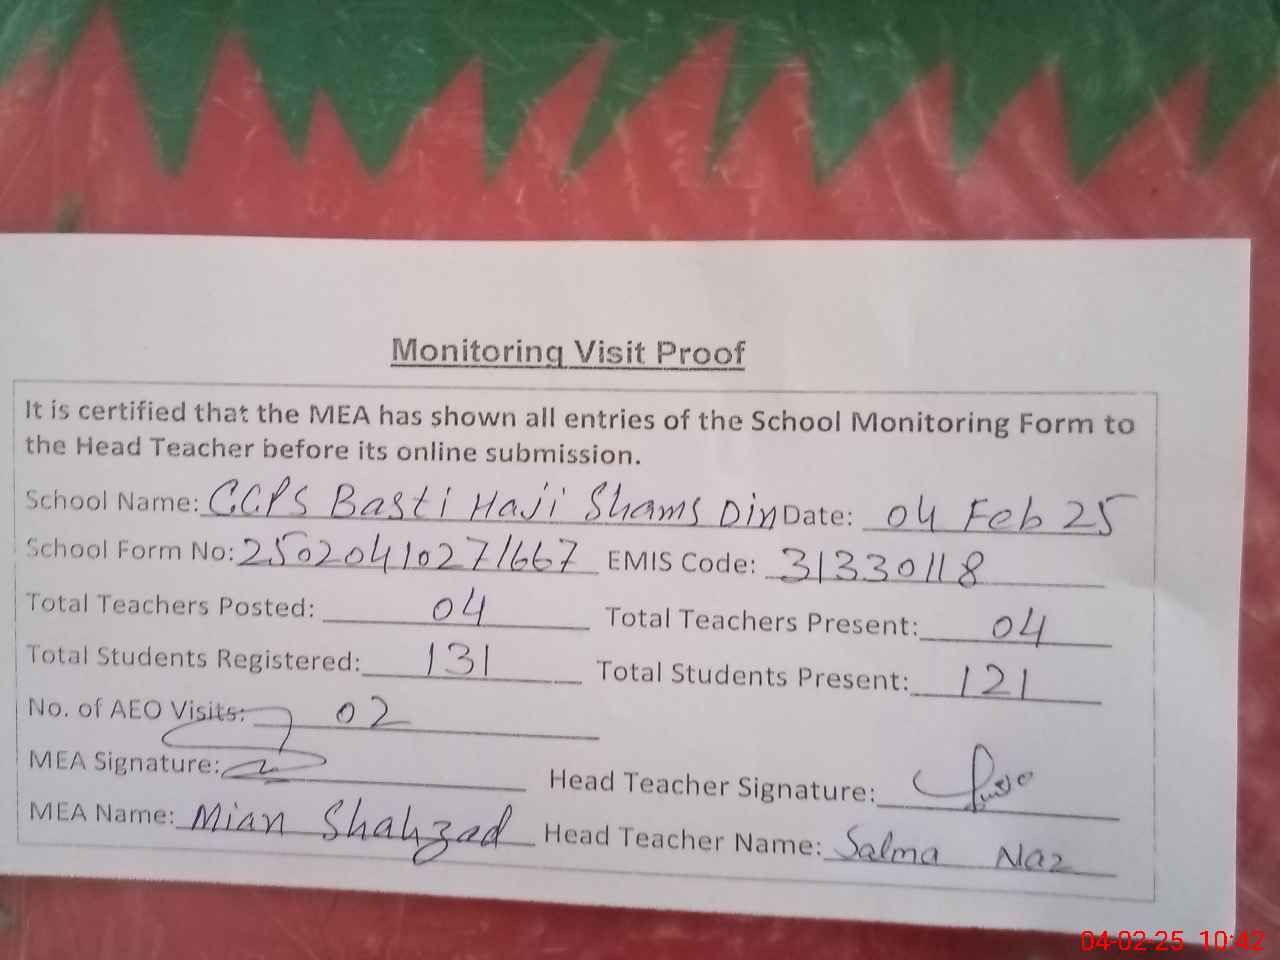 Monitoring Visit Proof
It is certified that the MEA has shown all entries of the School Monitoring Form to
the Head Teacher before its online submission.
School Name: GCPS Basti Haji Shams Din Date: 04 Feb 25
School Form No: 25020410271667 EMIS Code: 31330118
Total Teachers Posted: 04 Total Teachers Present: 04
Total Students Registered: 131 Total Students Present: 121
No. of AEO Visits: 02
MEA Signature: Head Teacher Signature:
MEA Name: Mian Shahzad Head Teacher Name: Salma Naz
04-02-25 10:42